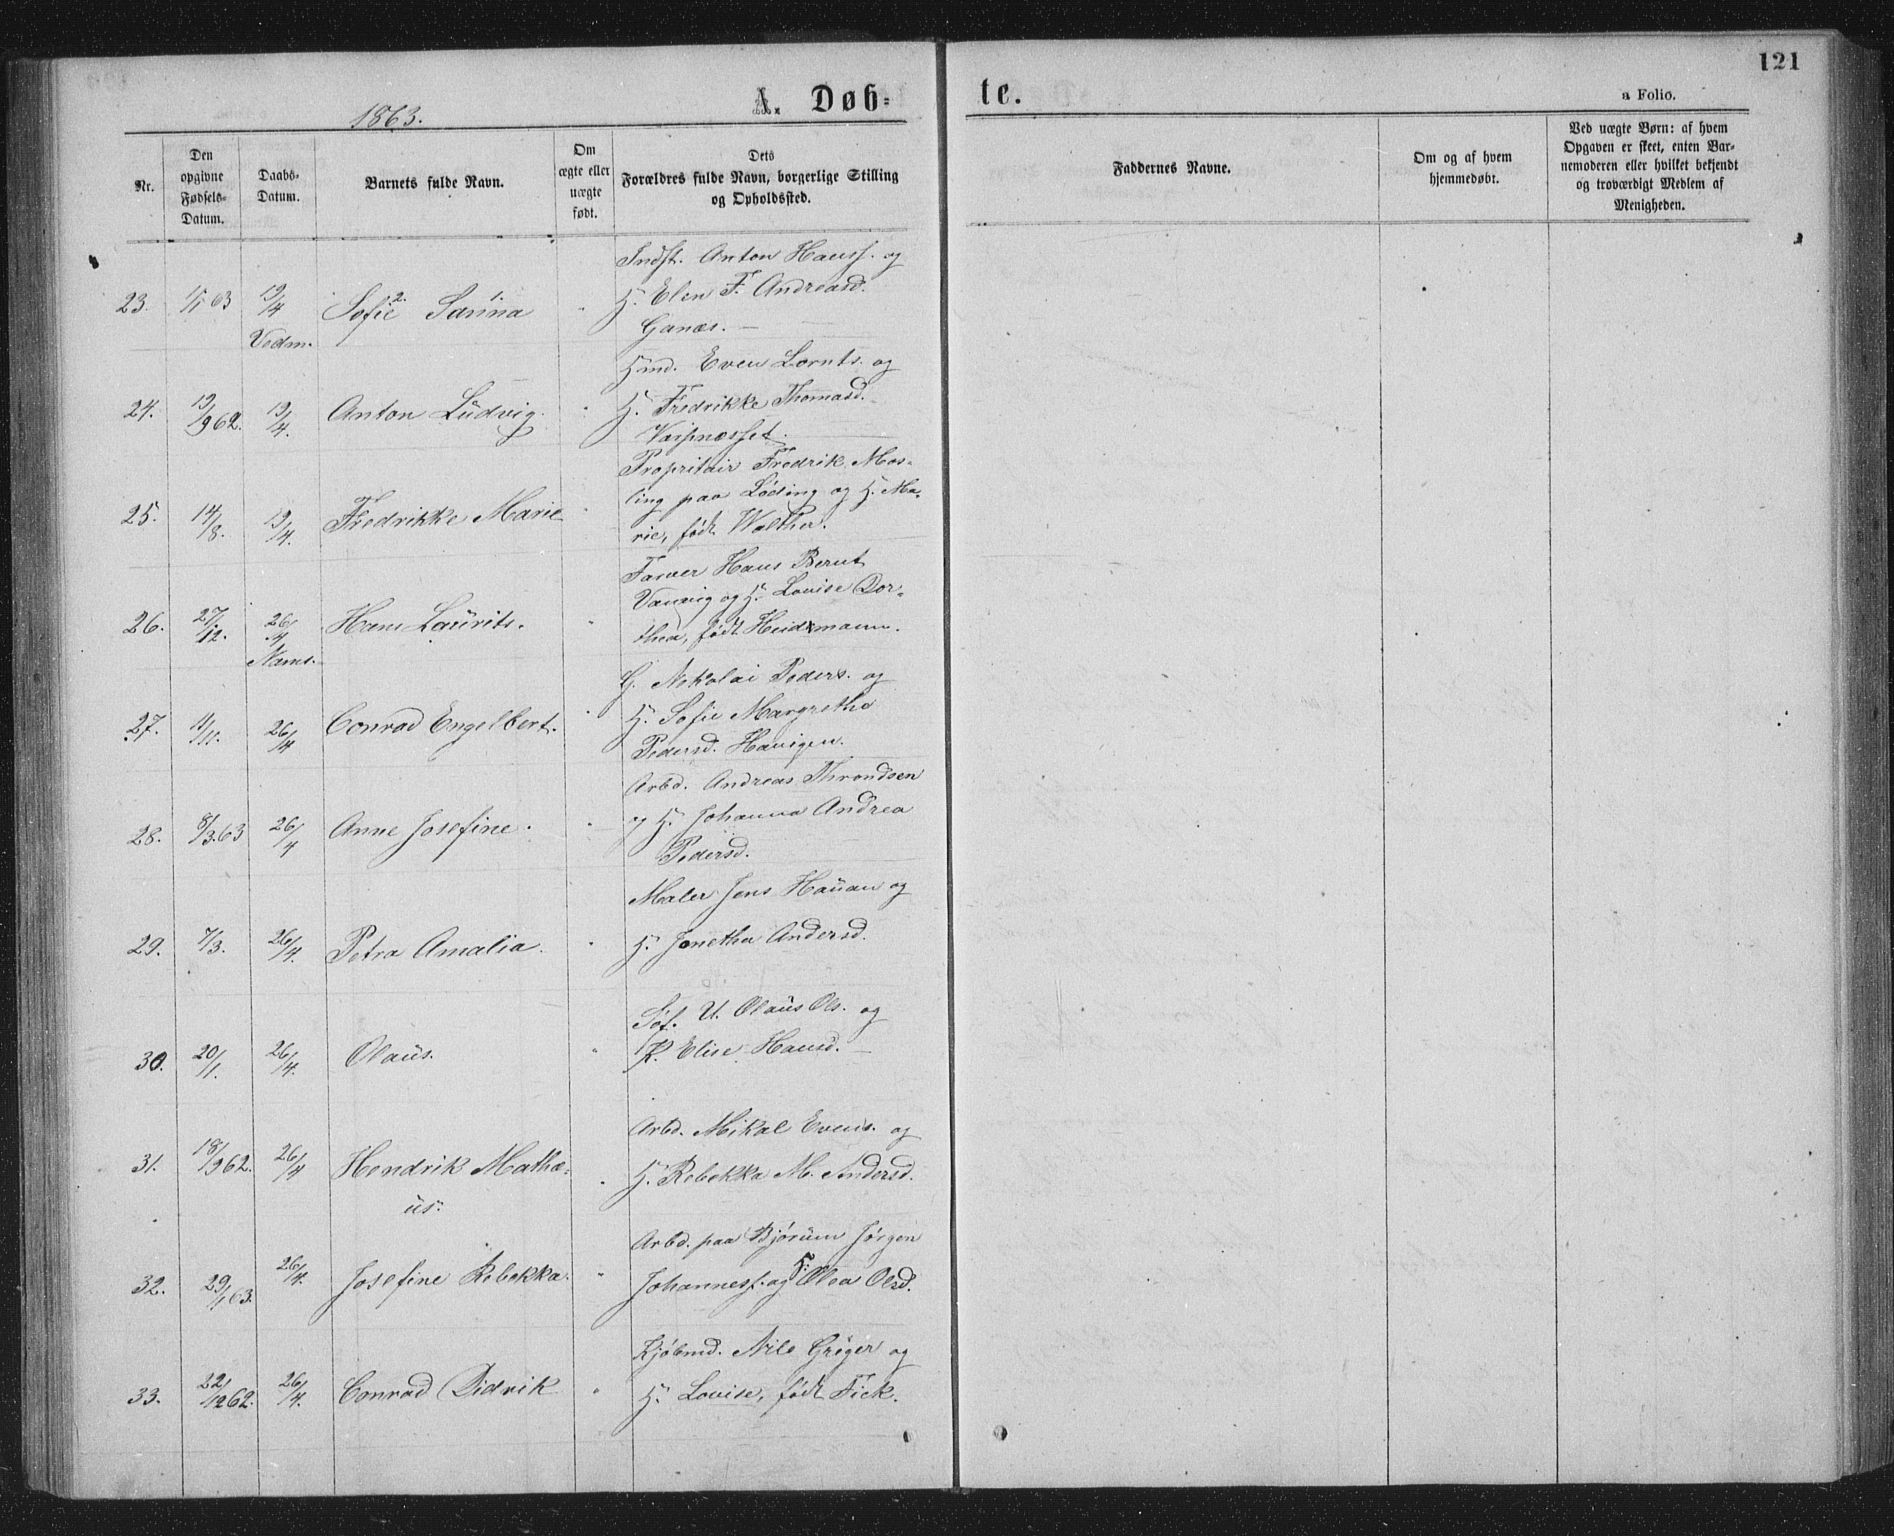 121
A. Døb=
te.
a Folio.
1863.
Nr.
Den
opgivne
Fødsels=
Datum.
Daabs=
Datum.
Barnets fulde Navn.
Om
ægte eller
uægte
født.
Dets
Forældres fulde Navn, borgerlige Stilling
og Opholdssted.
Faddernes Navne.
Om og af hvem
hjemmedøbt.
Ved uægte Børn: af hvem
Opgaven er skeet, enten Bar-
nemoderen eller hvilket bekjendt
og troværdigt Medlem af
Menigheden.
Indst. Anton Hanss. og
23. 1/1 63 19/4 Sofie 2. Sarina 1. " H. Elen F. Andreasd.
Vedm. Ganæs. —
Hmd. Even Lornts. og
24. 19/9 62. 19/4. Anton Ludvig. " H. Fredrikke Thomasd.
Varpnæsset.
Propritair Fredrik Mos-
25. 14/8. 19/4. Fredrikke Marie " ling paa Løding og H. Ma-
rie, født Walther.
Farver Hans Bernt
26. 27/12. 26/4 Hans Laurits. " Vanvig og H. Lovise Dor-
Nams. thea, født Heidmann.
G. Nikolai Peders. og
27. 11/11. 26/4 Conrad Engelbert. " H. Sofie Margrethe
Pedersd. Havigen.
Arbd. Andreas Throndsen
28. 8/3.63 26/4 Anne Josefine. " og H. Johanna Andrea
Pedersd.
Maler Jens Hauan og
29. 7/3. 26/4. Petra Amalia. " H. Jonetha Andersd.
Søf. U. Olaus Ols. og
30. 20/1. 26/4. Olaus. " K. Elise Hansd. —
Arbd. Mikal Evens. og
31. 18/9 62. 26/4 Hendrik Mathæ- " H. Rebekka M. Andersd.
us.
Arbd. paa Bjørum Jørgen
32. 29/1 63. 26/4. Josefine Rebekka. " Johanness. og H. Olea Olsd.
Kjøbmd. Nils Grøger og
33. 22/12 62. 26/4. Conrad Didrik " H. Lovise, født Fick.